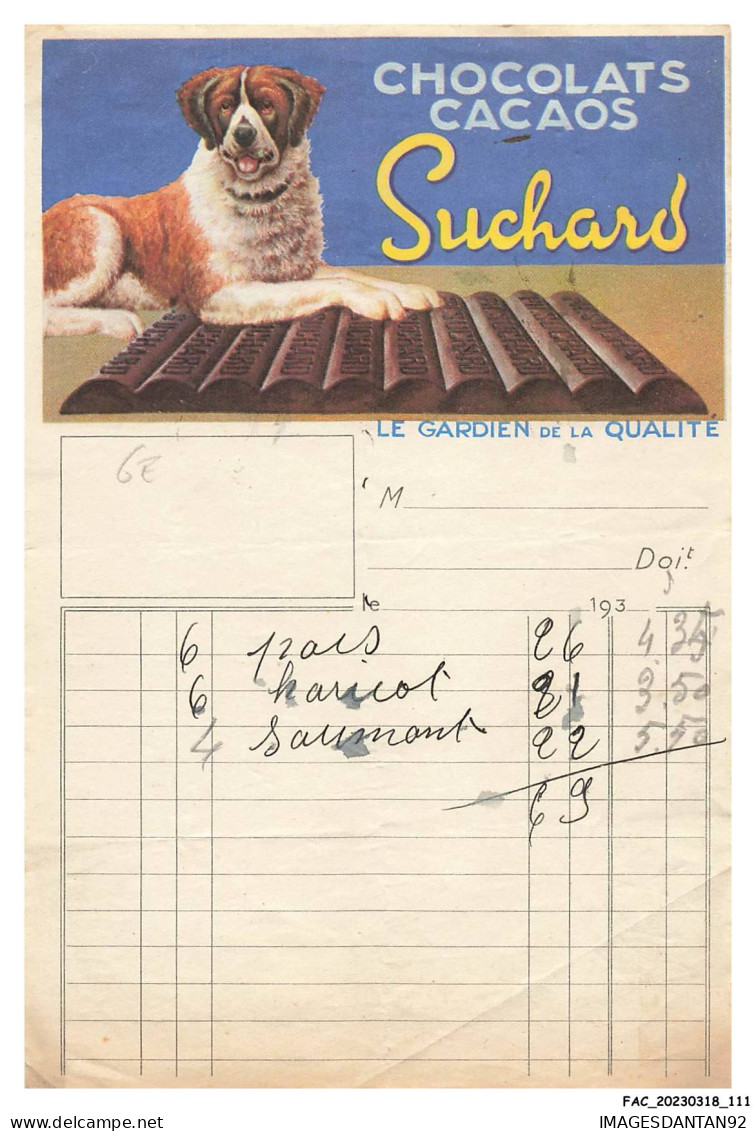 CHOCOLATS
CACAOS
Suchard
LE GARDIEN DE LA QUALITÉ
6E
M
Doit
le 193
6 pois 26 4.35
6 haricot 21 3.50
4 Saumont 22 5.50
69
FAC_20230318_111
IMAGESDANTAN92